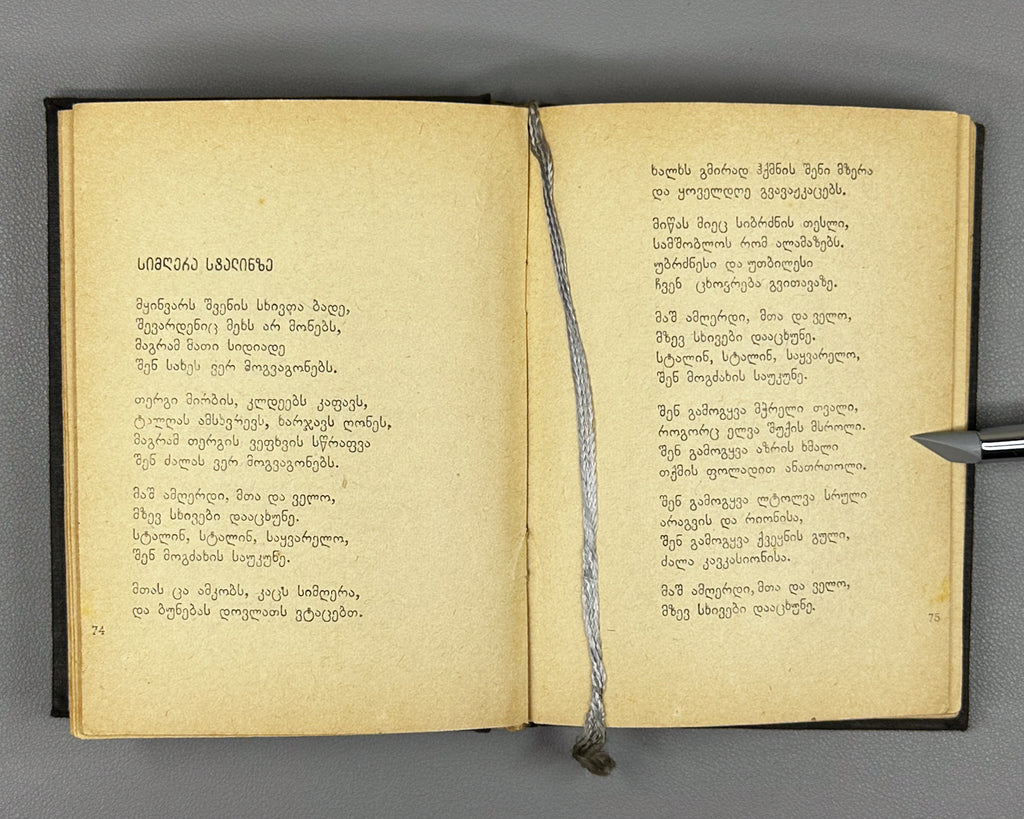 სიმღერა სტალინზე
მყინვარს შვენის სხივთა ბადე,
შევარდენიც მეხს არ მონებს,
მაგრამ მათი სიდიადე
შენ სახეს ვერ მოგვაგონებს.
თერგი მირბის, კლდეებს კაფავს,
ტალღას ამსხვრევს, ხარჯავს ღონეს,
მაგრამ თერგის ვეფხვის სწრაფვა
შენ ძალას ვერ მოგვაგონებს.
მაშ ამღერდი, მთა და ველო,
მზევ სხივები დააცხუნე.
სტალინ, სტალინ, საყვარელო,
შენ მოგძახის საუკუნე.
მთას ცა ამკობს, კაცს სიმღერა,
და ბუნებას დოვლათს ვტაცებთ.
74
ხალხს გმირად ჰქმნის შენი მზერა
და ყოველდღე გვავაჟკაცებს.
მიწას მიეც სიბრძნის თესლი,
სამშობლოს რომ ალამაზებს.
უბრძნესი და უთბილესი
ჩვენ ცხოვრება გვითავაზე.
მაშ ამღერდი, მთა და ველო,
მზევ სხივები დააცხუნე.
სტალინ, სტალინ, საყვარელო,
შენ მოგძახის საუკუნე.
შენ გამოგყვა მჭრელი თვალი,
როგორც ელვა შუქის მსროლი.
შენ გამოგყვა აზრის ხმალი
თქმის ფოლადით ანათრთოლი.
შენ გამოგყვა ლტოლვა სრული
არაგვის და რიონისა,
შენ გამოგყვა ქვეყნის გული,
ძალა კავკასიონისა.
მაშ ამღერდი, მთა და ველო,
მზევ სხივები დააცხუნე.
75